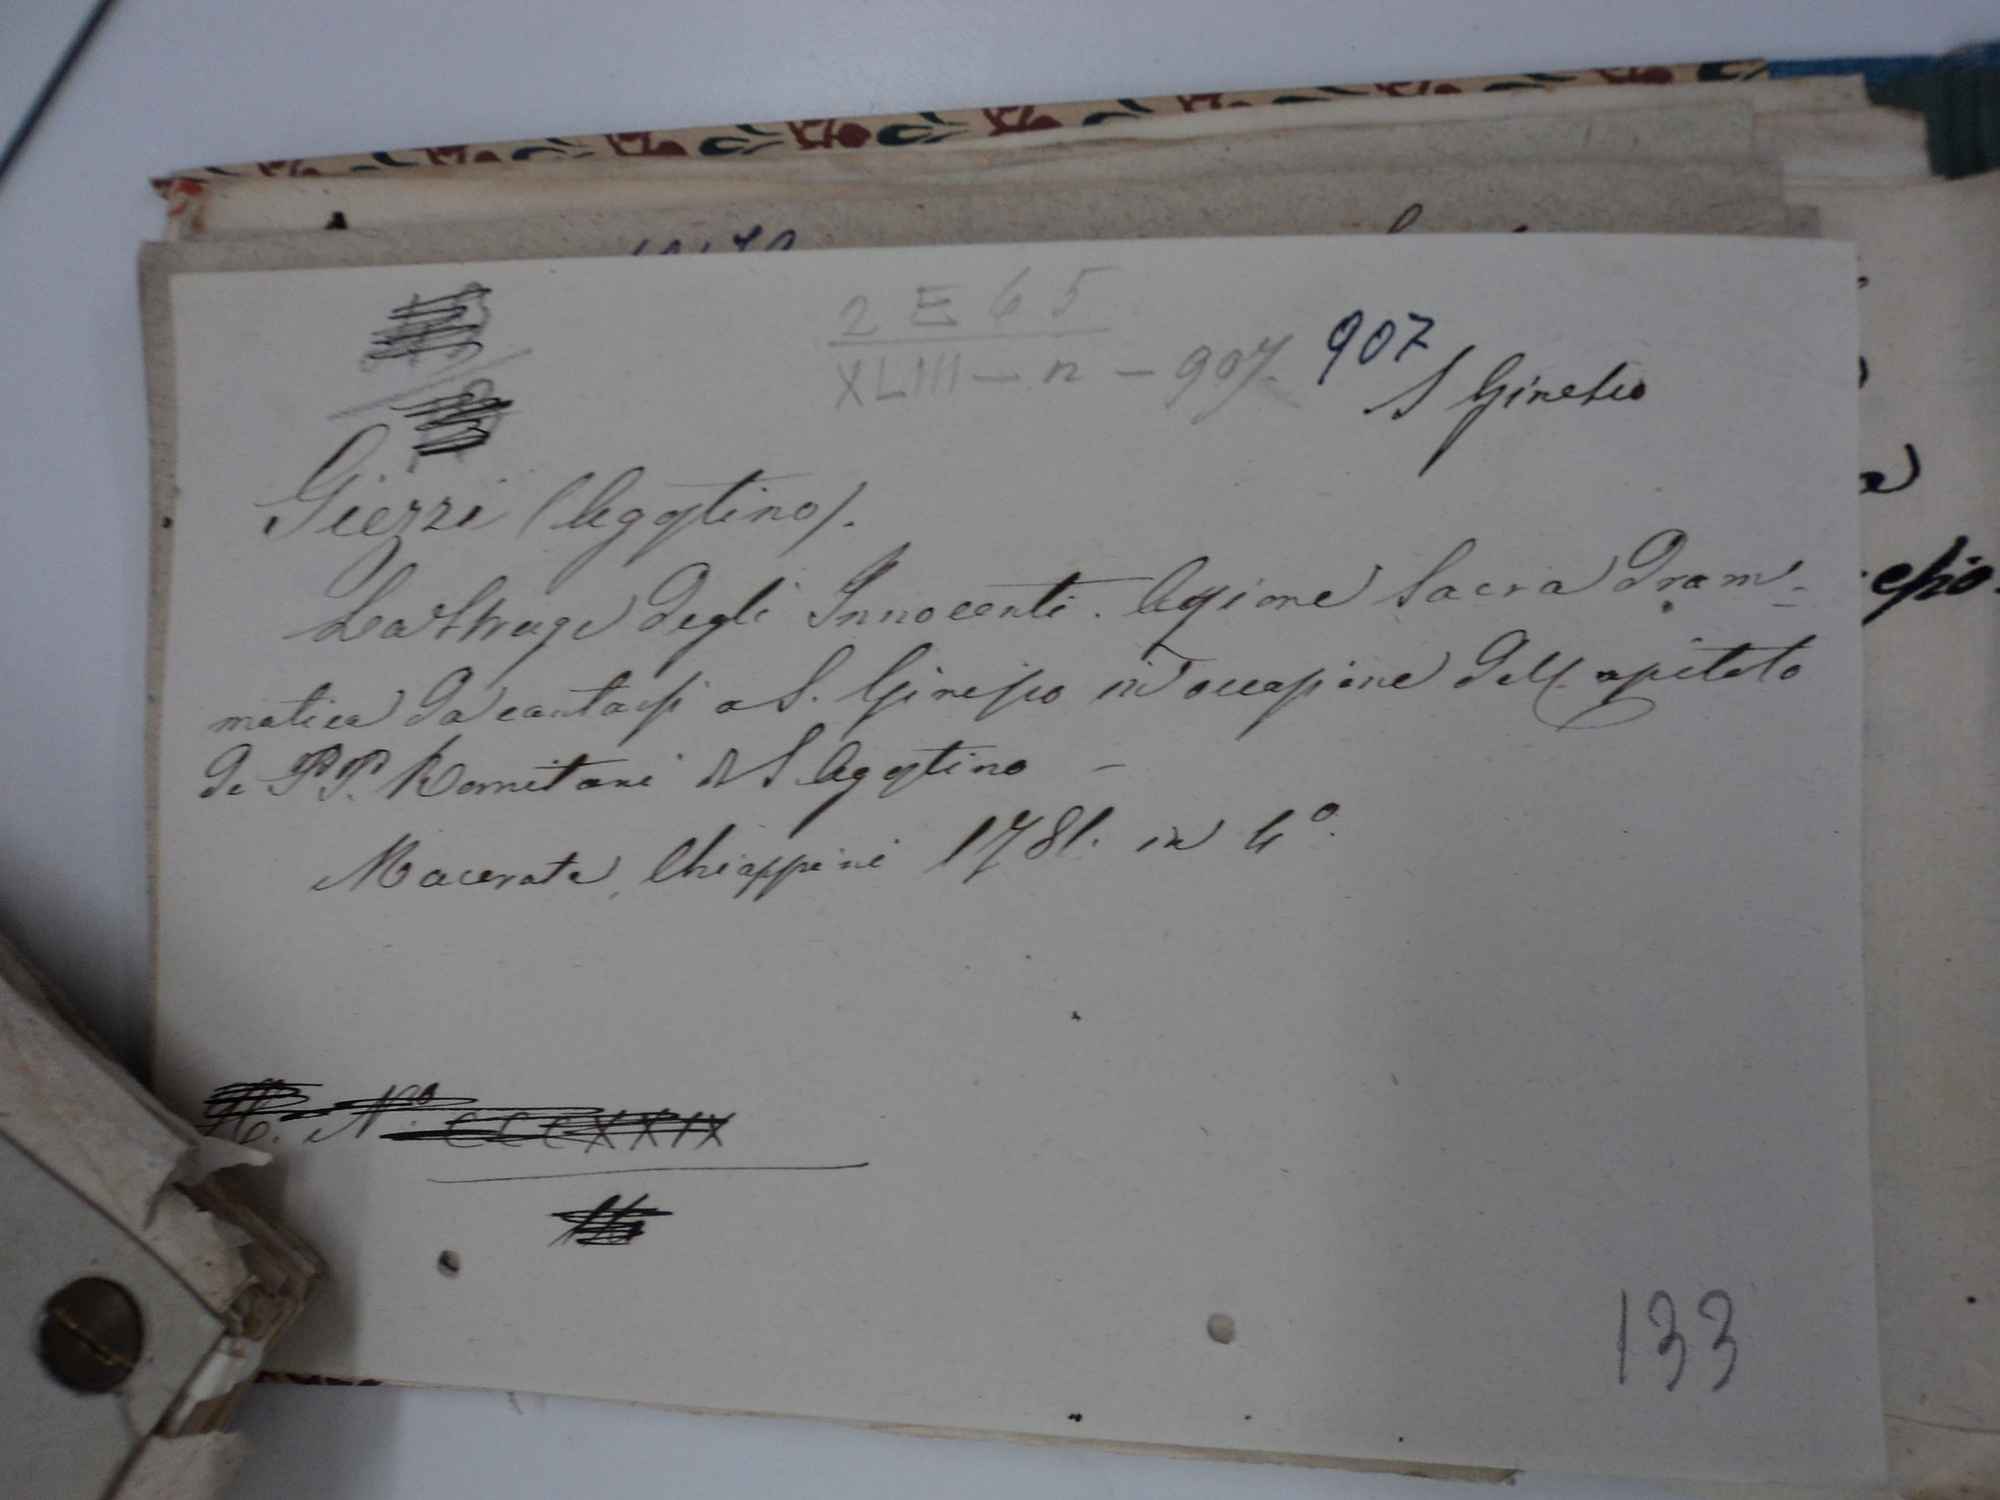 2 E 65
XLIII - n - 907
907
S Ginesio
Giezzi (Agostino).
La Strage degli Innocenti. Azione Sacra Dram-
matica da cantarsi a S. Ginesio in occasione del Capitolo
de PP. Romitani di S Agostino -
Macerata, Chiappini 1781. in 4°.
N.° CCCXXIX
133